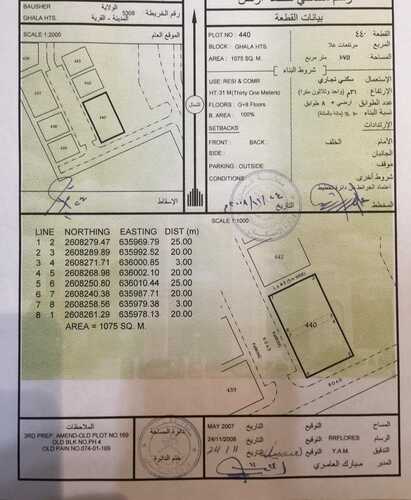 BAUSHER الولاية
GHALA HTS. المدينة - القرية
5308 رقم الخريطة
SCALE 1:2000 الموقع العام
440
الاسقاط
الشمال
بيانات القطعة
PLOT NO : 440 القطعة ٤٤٠
BLOCK : GHALA HTS. المربع مرتفعات غلا
AREA : 1075 SQ. M. المساحة ١٠٧٥ متر مربع
شروط البناء
USE: RESI & COMR الاستعمال سكني تجاري
HT:31 M(Thirty One Meters) الإرتفاع
FLOORS: G+8 Floors عدد الطوابق أرضي + ٨ طوابق
B. AREA: 100% نسبة البناء
SETBACKS الإرتدادات
FRONT : BACK: الخلف الأمام
SIDE: الجانبان
PARKING : OUTSIDE موقف
شروط أخرى
المخطط
التاريخ
SCALE 1:1000
LINE NORTHING EASTING DIST (m)
1 2 2608279.47 635969.79 25.00
2 3 2608289.89 635992.52 20.00
3 4 2608271.71 636000.85 3.00
4 5 2608268.98 636002.10 20.00
5 6 2608250.80 636010.44 25.00
6 7 2608240.38 635987.71 20.00
7 8 2608258.56 635979.38 3.00
8 1 2608261.29 635978.13 20.00
AREA = 1075 SQ. M.
442
440
439
ROAD
PARKING
ROAD
الملاحظات
3RD PREP. AMEND-OLD PLOT NO.169
OLD BLK NO.PH 4
OLD PAIN NO.074-01-169
دائرة المساحة
ختم الدائرة
MAY 2007 التاريخ التوقيع المساح
24/11/2008 التاريخ التوقيع RRFLORES الرسام
24/11 التاريخ التوقيع Y.A.M. التدقيق
التوقيع مبارك العامري المدير